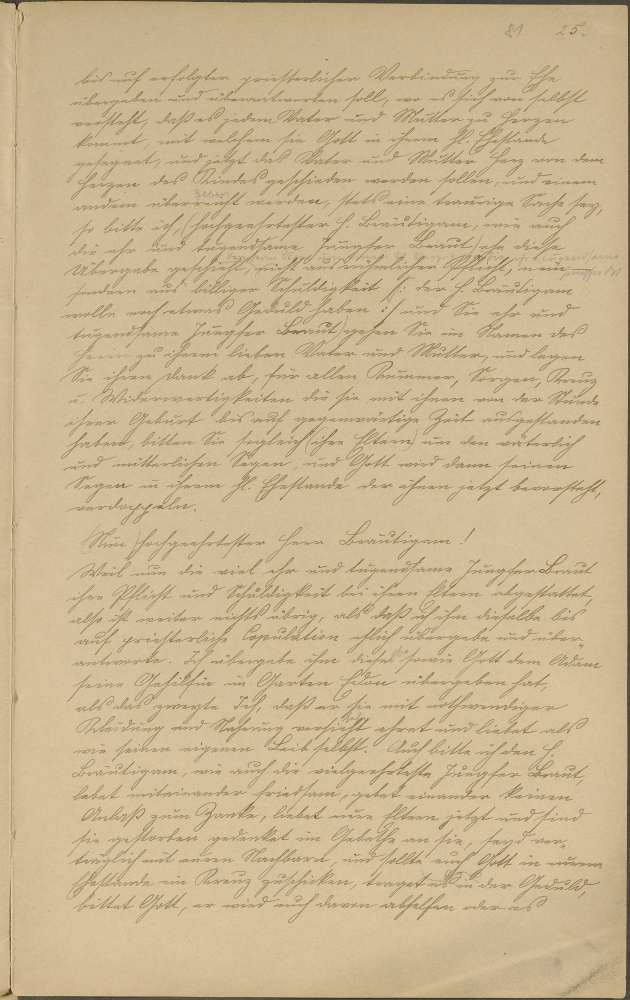 81 25.
bis auf erfolgter priesterlicher Verbindung zur Ehe
übergeben und überantworten soll, wo es sich von selbst
versteht, daß es jedem Vater und Mutter zu Herzen
kommt, mit welchem sie Gott in ihrem hl. Ehestande
gesegnet, und jetzt das Vater und Mutter Herz von dem
Herzen des Kindes geschieden werden sollen, und einem
andern überreicht werden, stets eine traurige Sache sey,
so bitte ich, (hochgeehrtester H. Bräutigam, wie auch
die ehr und tugendsame Jungfer Braut) ehe diese
Übergabe geschieht, nicht aus rühmlicher Pflicht,
sondern aus billiger Schuldigkeit /: der H. Bräutigam
wolle noch etwas Geduld haben :/ und Sie ehr und
tugendsame Jungfer Braut, gehen Sie im Namen des
Herrn zu ihrem lieben Vater und Mutter, und legen
Sie ihren Dank ab, für allen Kummer, Sorgen, Kreuz
u. Widerwertigkeiten die sie mit ihnen von der Stunde
ihrer Geburt bis auf gegenwärtige Zeit ausgestanden
haben, bitten Sie sogleich (ihre Eltern) um den väterlich
und mütterlichen Segen, und Gott wird dann seinen
Segen in ihrem hl. Ehestande der ihnen jetzt bevorsteht,
verdoppeln.
Nun hochgeehrtester Herr Bräutigam!
Weil nun die viel ehr und tugendsame Jungfer Braut
ihre Pflicht und Schuldigkeit bei ihren Eltern abgestattet,
also ist weiter nichts übrig, als daß ich ihm dieselbe bis
auf priesterliche Copulation ehlich übergebe und über-
antworte. Ich übergebe ihm diese sowie Gott dem Adam
seine Gehilfin im Garten Eden übergeben hat,
als das zweyte Ich, daß er sie mit nothwendiger
Kleidung und Nahrung versieht ehret und liebet als
wie seinen eigenen Leib selbst. Auch bitte ich den H.
Bräutigam, wie auch die vielgeehrteste Jungfer Braut,
lebet miteinander friedsam, gebet einander keinen
Anlaß zum Zanke, liebet eure Eltern jetzt und sind
sie gestorben gedenket im Gebethe an sie, seyd ver-
träglich mit euren Nachbarn, und sollte euch Gott in eurem
Ehestande ein Kreuz zuschicken, traget es in der Geduld,
bittet Gott, er wird euch davon abhelfen oder es